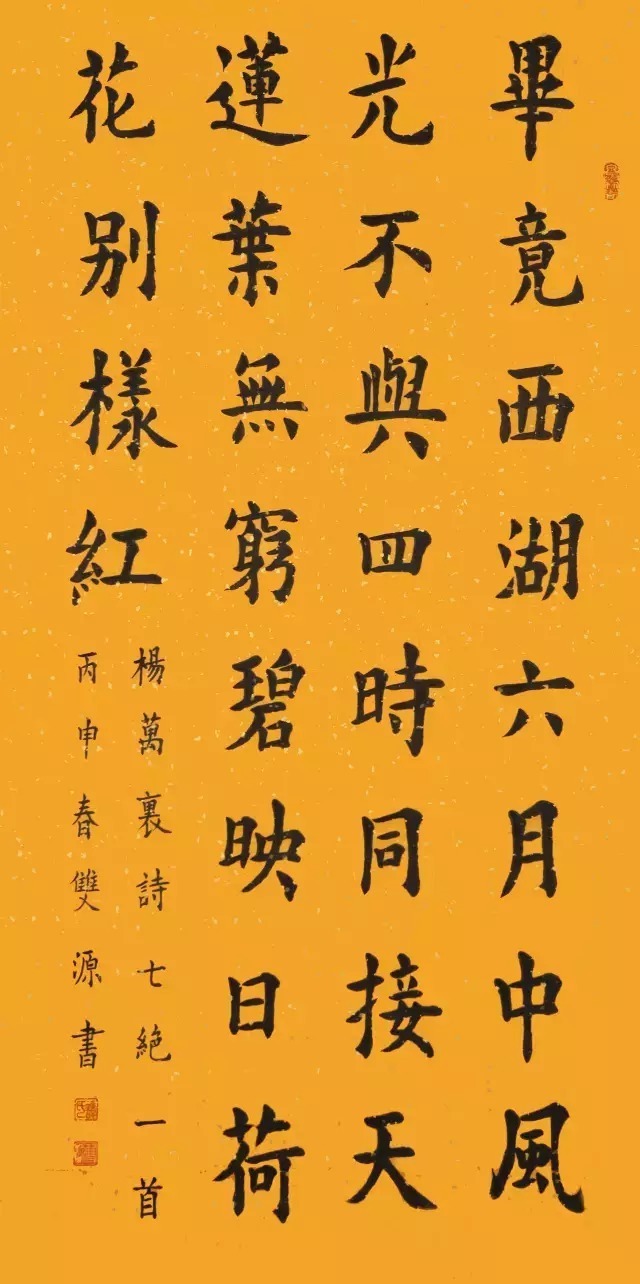 畢竟西湖六月中風
光不與四時同接天
蓮葉無窮碧映日荷
花别樣紅
楊萬裏詩七絶一首
丙申春雙源書